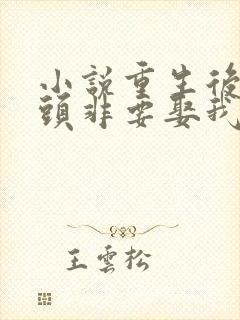 小說重生後
頭非要娶我
王雲松